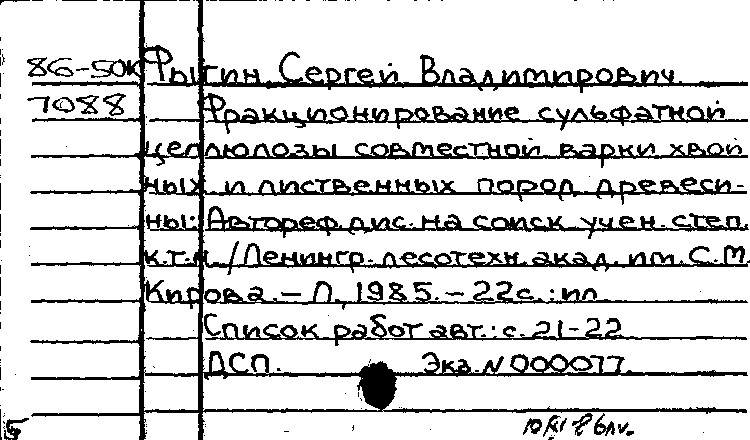 86-50к Фыгин Сергей Владимирович
7088 Фракционирование сульфатной
целлюлозы совместной варки хвой
ных и лиственных пород древеси-
ны: Автореф. дис. на соиск учен. степ.
к.т.н. / Ленингр. лесотехн. акад. им. С.М.
Кирова. – Л., 1985. – 22с.: ил
Список работ авт.: с. 21-22
ДСП. Экз. N 000077
5